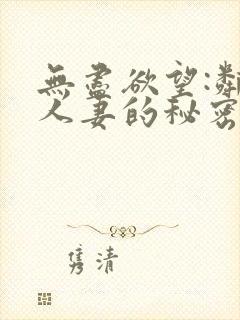 無盡欲望:鄰
人妻的秘密
隽清